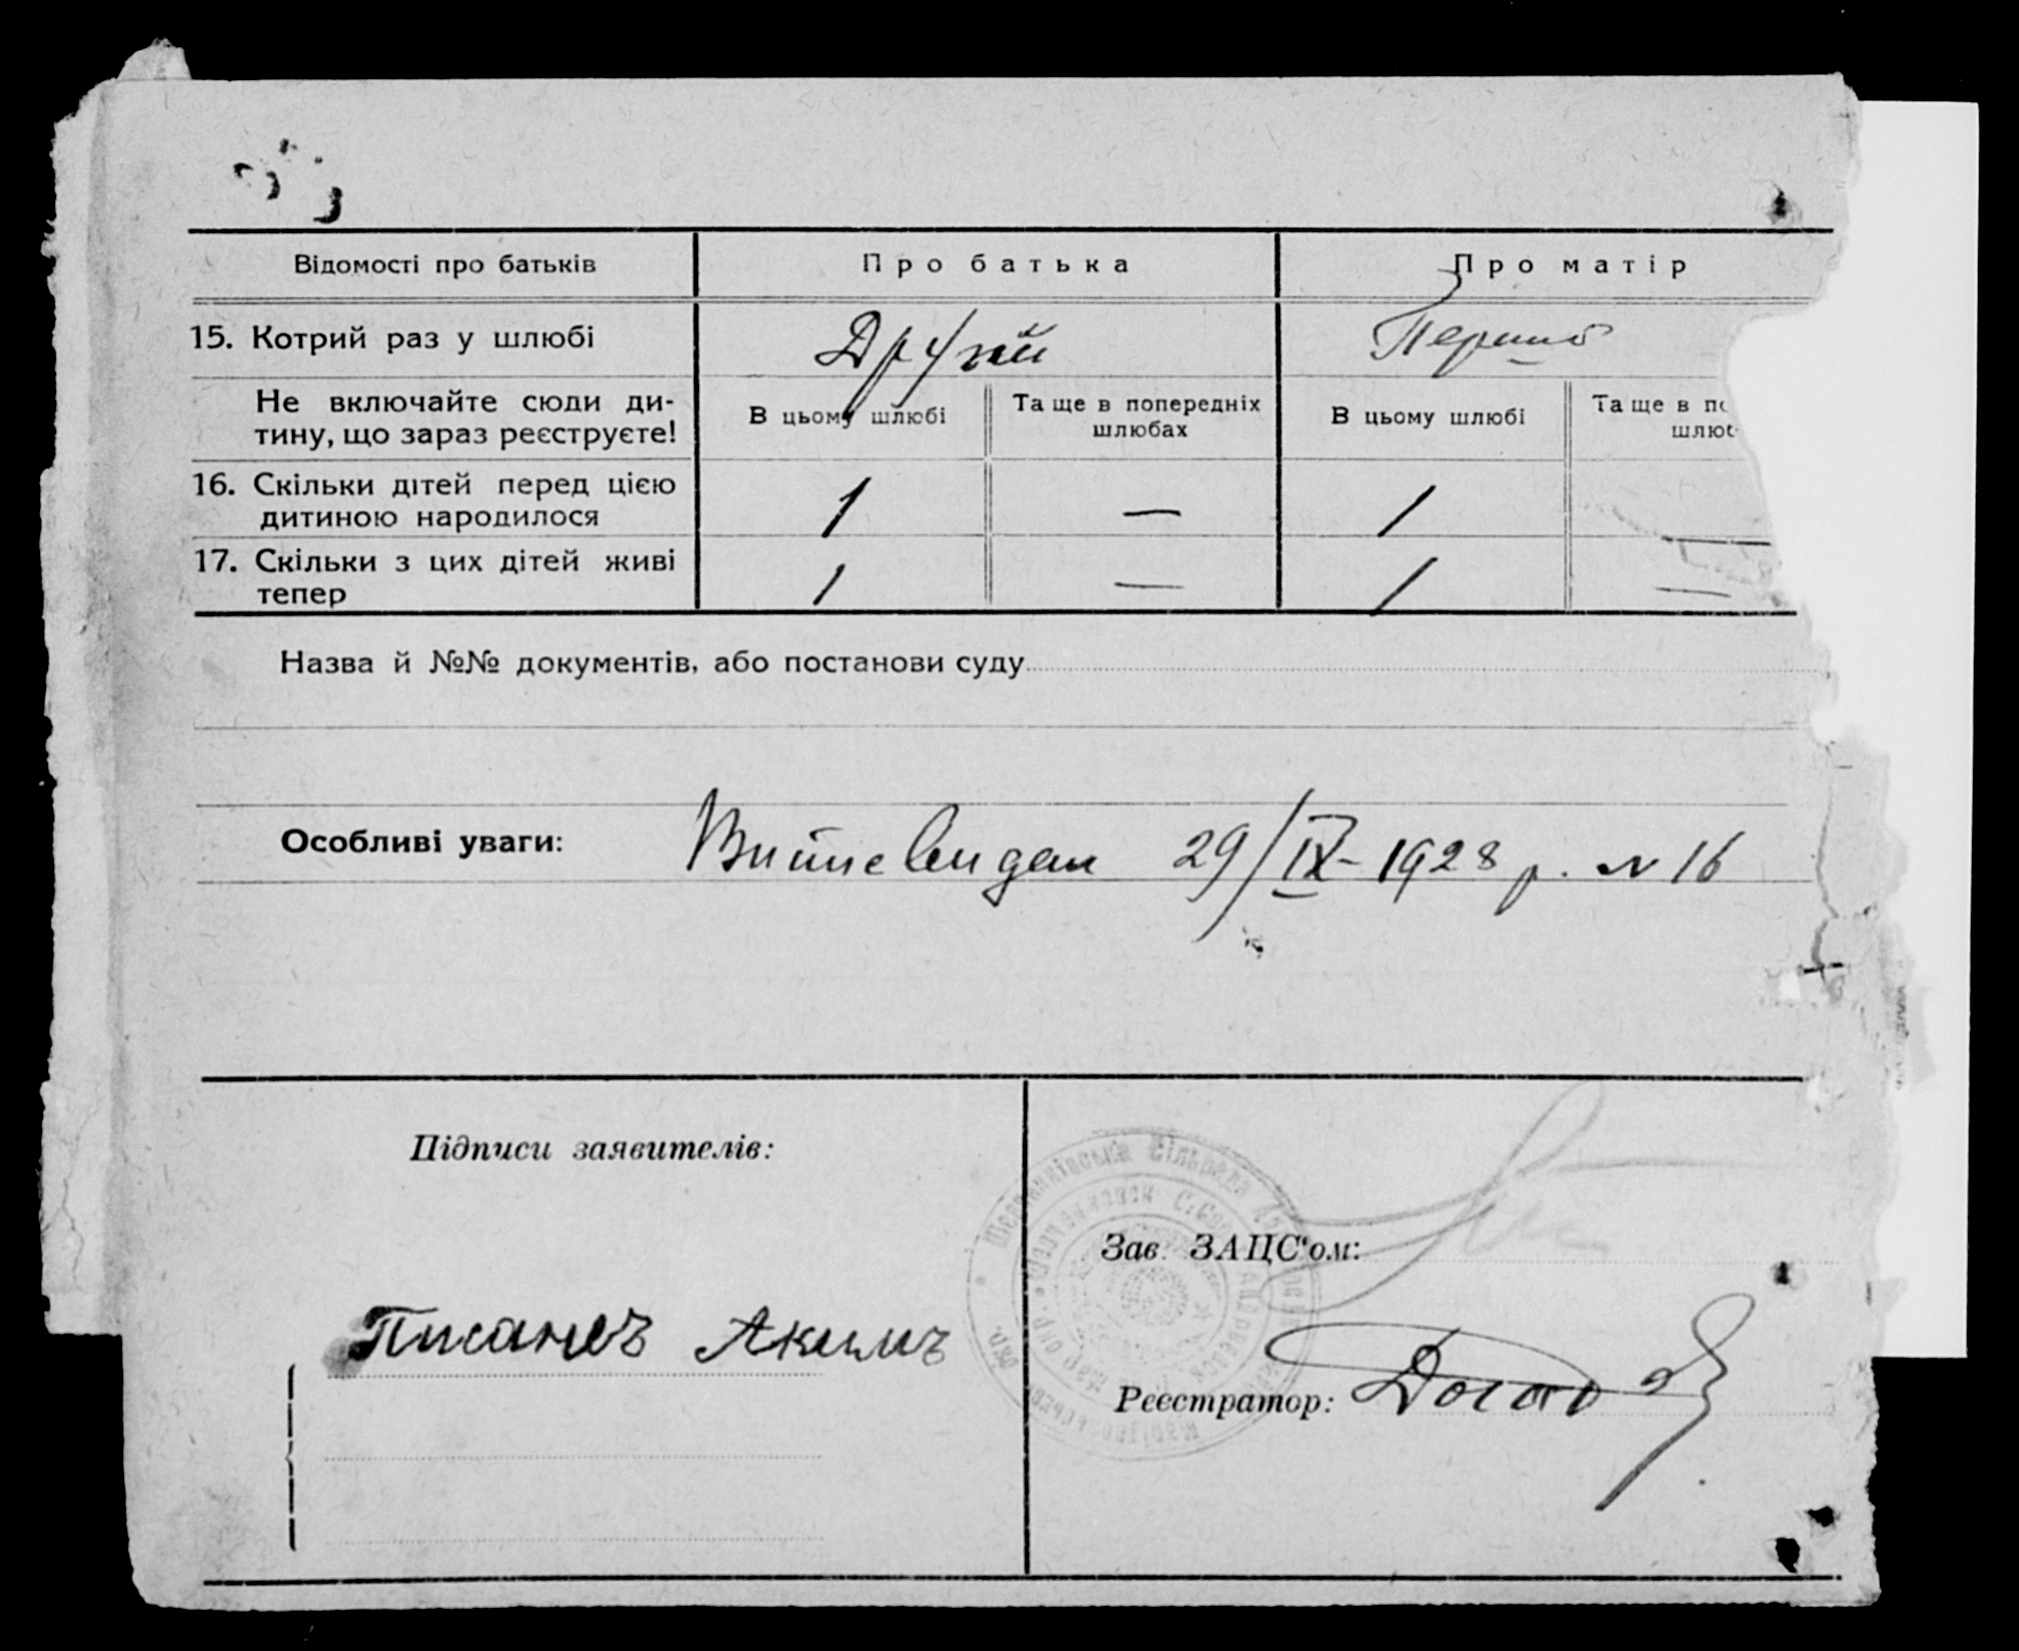 Відомості про батьків
Про батька
Про матір
15. Котрий раз у шлюбі
Другий
Перший
Не включайте сюди ди-
тину, що зараз реєструєте!
В цьому шлюбі
Та ще в попередніх
шлюбах
В цьому шлюбі
Та ще в по
шлюб
16. Скільки дітей перед цією
дитиною народилося
1
—
1
17. Скільки з цих дітей живі
тепер
1
—
1
—
Назва й №№ документів, або постанови суду
Особливі уваги:
29/IX-1928 р. N 16
Підписи заявителів:
Зав. ЗАЦС'ом:
Писанец Акимъ
Реєстратор: